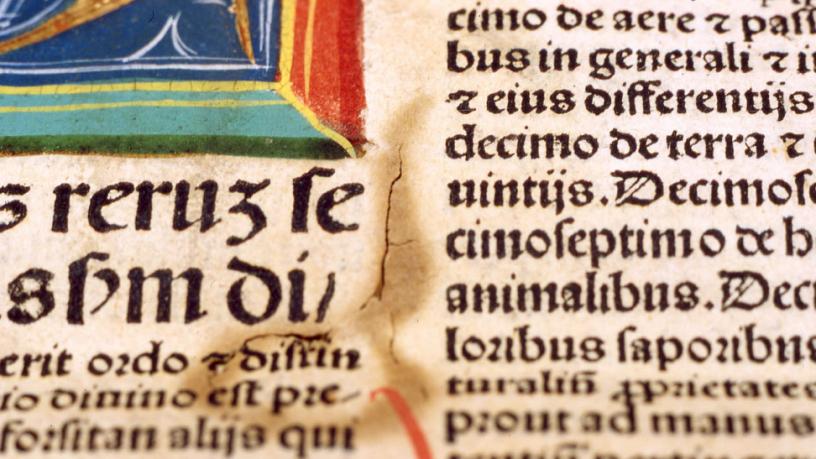 reruꝫ ſe
ẜm di/
erit ordo ⁊ diſtin
io diuino eſt pre-
forſitan alijs qui
cimo de aere ⁊ paſſ
bus in generali ⁊ i
⁊ eius differentijs
decimo de terra ⁊
uintijs. Decimoſe
cimoſeptimo de h
animalibus. Dec
loribus ſaporibus
turaliū ꝓprietate
prout ad manus